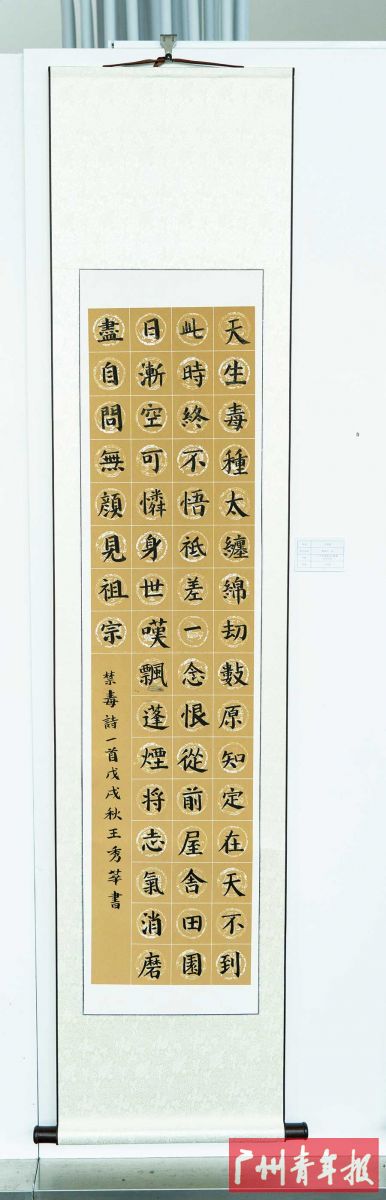 天生毒種太纏綿劫數原知定在天不到
此時終不悟祗差一念恨從前屋舍田園
日漸空可憐身世嘆飄蓬煙將志氣消磨
盡自問無顔見祖宗
禁毒詩一首戊戌秋王秀莘書
广州青年报